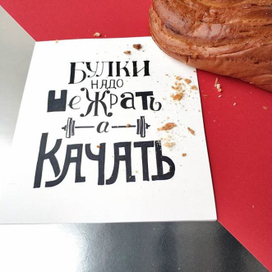 БУЛКИ
НАДО
НЕ ЖРАТЬ
а
КАЧАТЬ